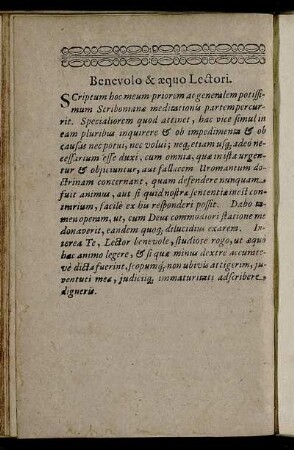 Benevolo & æquo Lectori.
SCriptum hoc meum priorem ac generalem potissi-
mum Scribonianæ meditationis partem percur-
rit. Specialiorem quod attinet, hac vice simul in
eam pluribus inquirere & ob impedimenta & ob
causas nec potui, nec volui; neq; etiam usq; adeò ne-
cessarium esse duxi, cum omnia, quæ in ista urgen-
tur & objiciuntur, aut fallacem Uromantum do-
ctrinam concernant, quam defendere nunquam
fuit animus, aut si quid nostræ sententiæ inest con-
trarium, facile ex his responderi possit. Dabo ta-
men operam, ut, cum Deus commodiori statione me
donaverit, eandem quoq; dilucidius exarem. In-
terea Te, Lector benevole, studiose rogo, ut æquo
hæc animo legere, & si quæ minus dextre accurate-
vè dicta fuerint, scopumq; non ubivis attigerim, ju-
ventuti meæ, judiciiq; immaturitati adscribere
digneris.